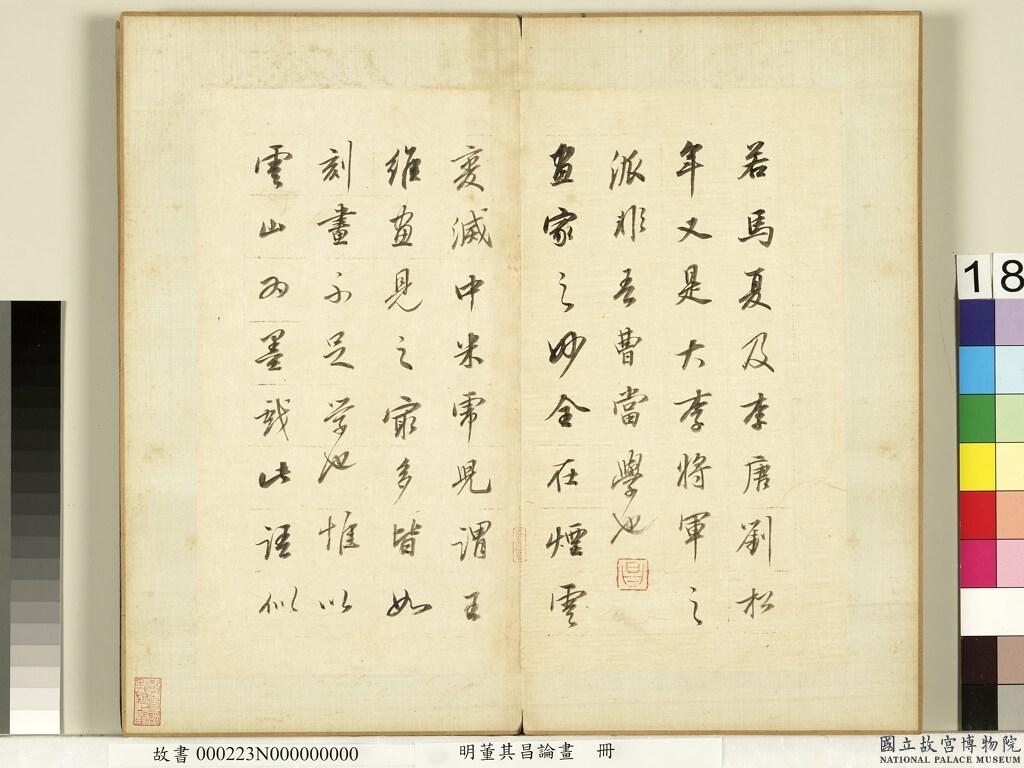 若馬夏及李唐劉松
年又是大李將軍之
派非吾曹當學也
畫家之妙全在煙雲
變滅中米帋見謂王
維畫見之寂多皆如
刻畫不足学也惟以
雲山為墨戲此語似
18
故書 000223N000000000
明董其昌論畫 冊
國立故宮博物院
NATIONAL PALACE MUSEUM